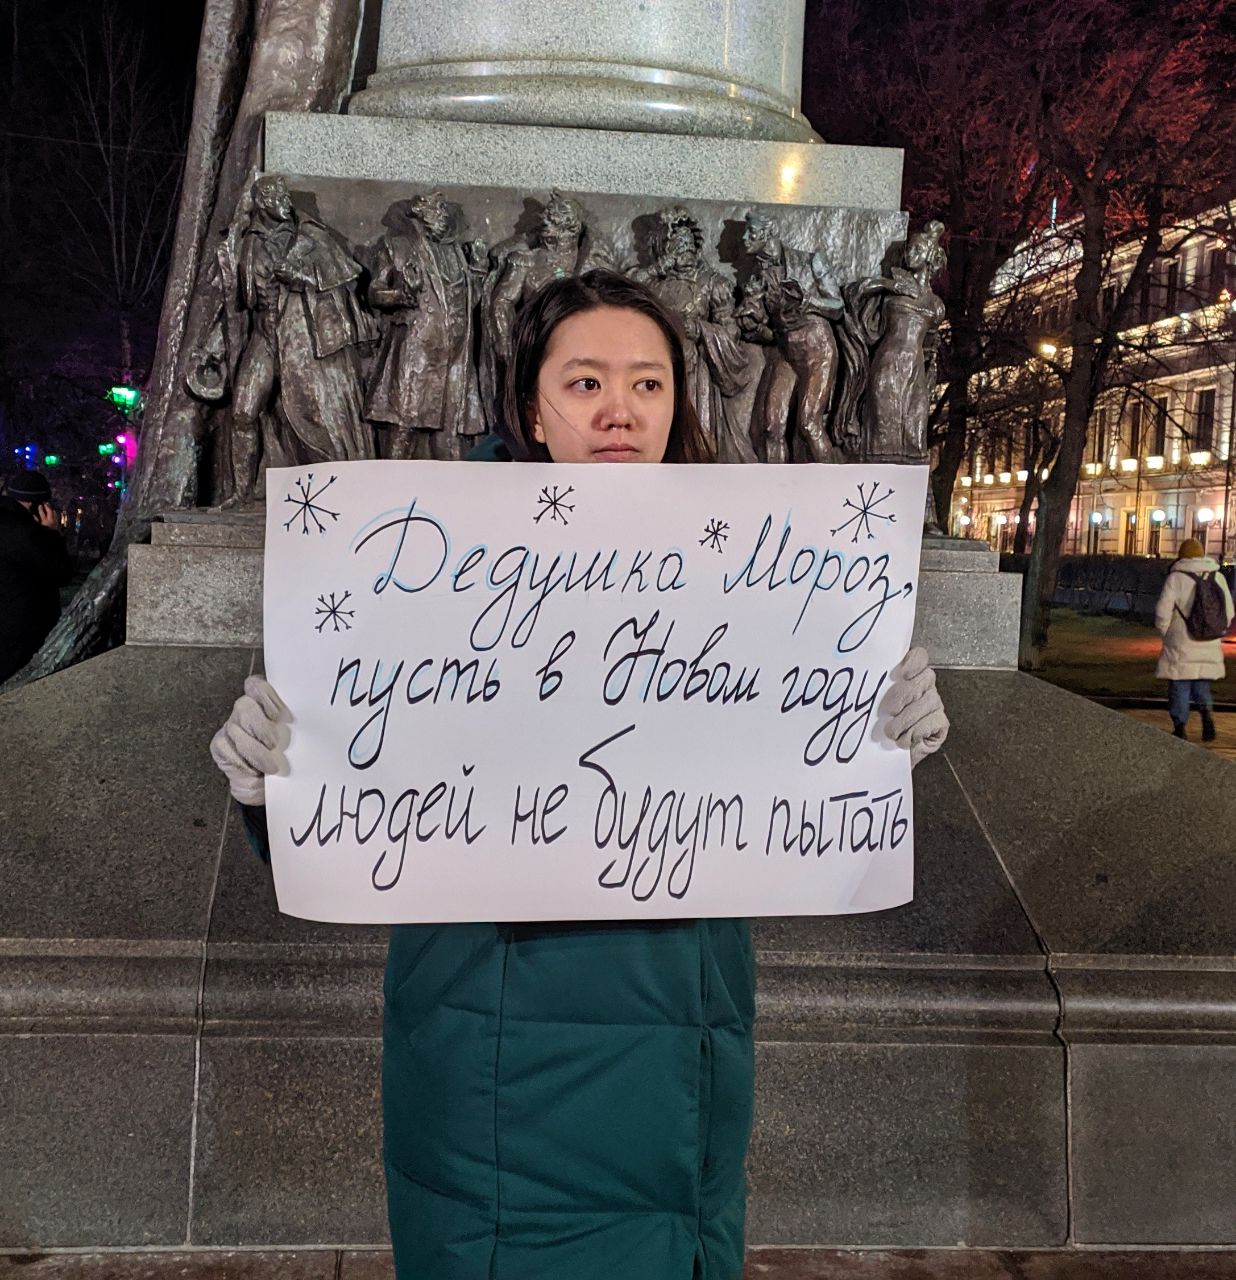 Дедушка Мороз,
пусть в Новом году
людей не будут пытать